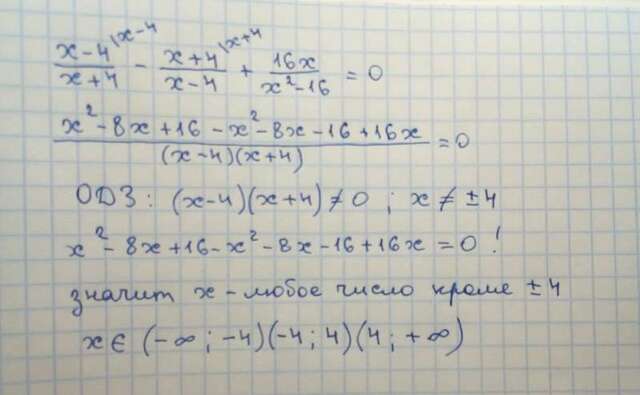 (x-4)/(x+4) \x-4 - (x+4)/(x-4) \x+4 + 16x/(x²-16) = 0
(x²-8x+16-x²-8x-16+16x)/((x-4)(x+4)) = 0
ОДЗ: (x-4)(x+4)≠0 ; x ≠ ±4
x²-8x+16-x²-8x-16+16x=0!
значит x-любое число кроме ±4
x∈ (-∞; -4)(-4; 4)(4; +∞)